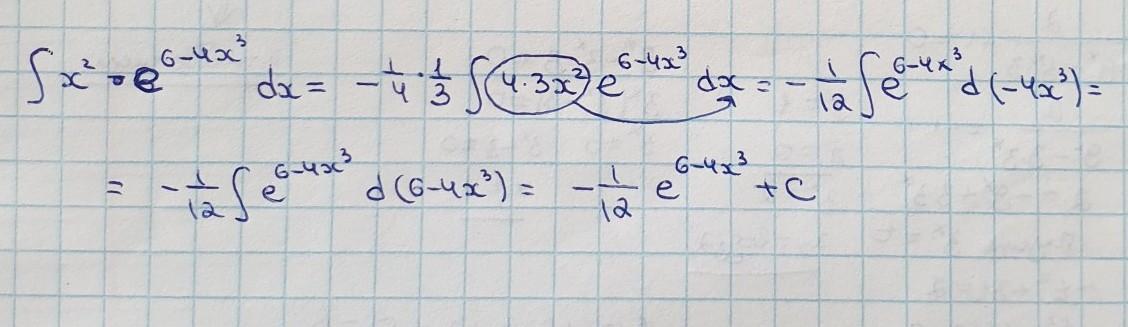 ∫ x² · e^(6-4x³) dx = -1/4 · 1/3 ∫ (4·3x²) e^(6-4x³) dx = -1/12 ∫ e^(6-4x³) d(-4x³) =
= -1/12 ∫ e^(6-4x³) d(6-4x³) = -1/12 e^(6-4x³) + C